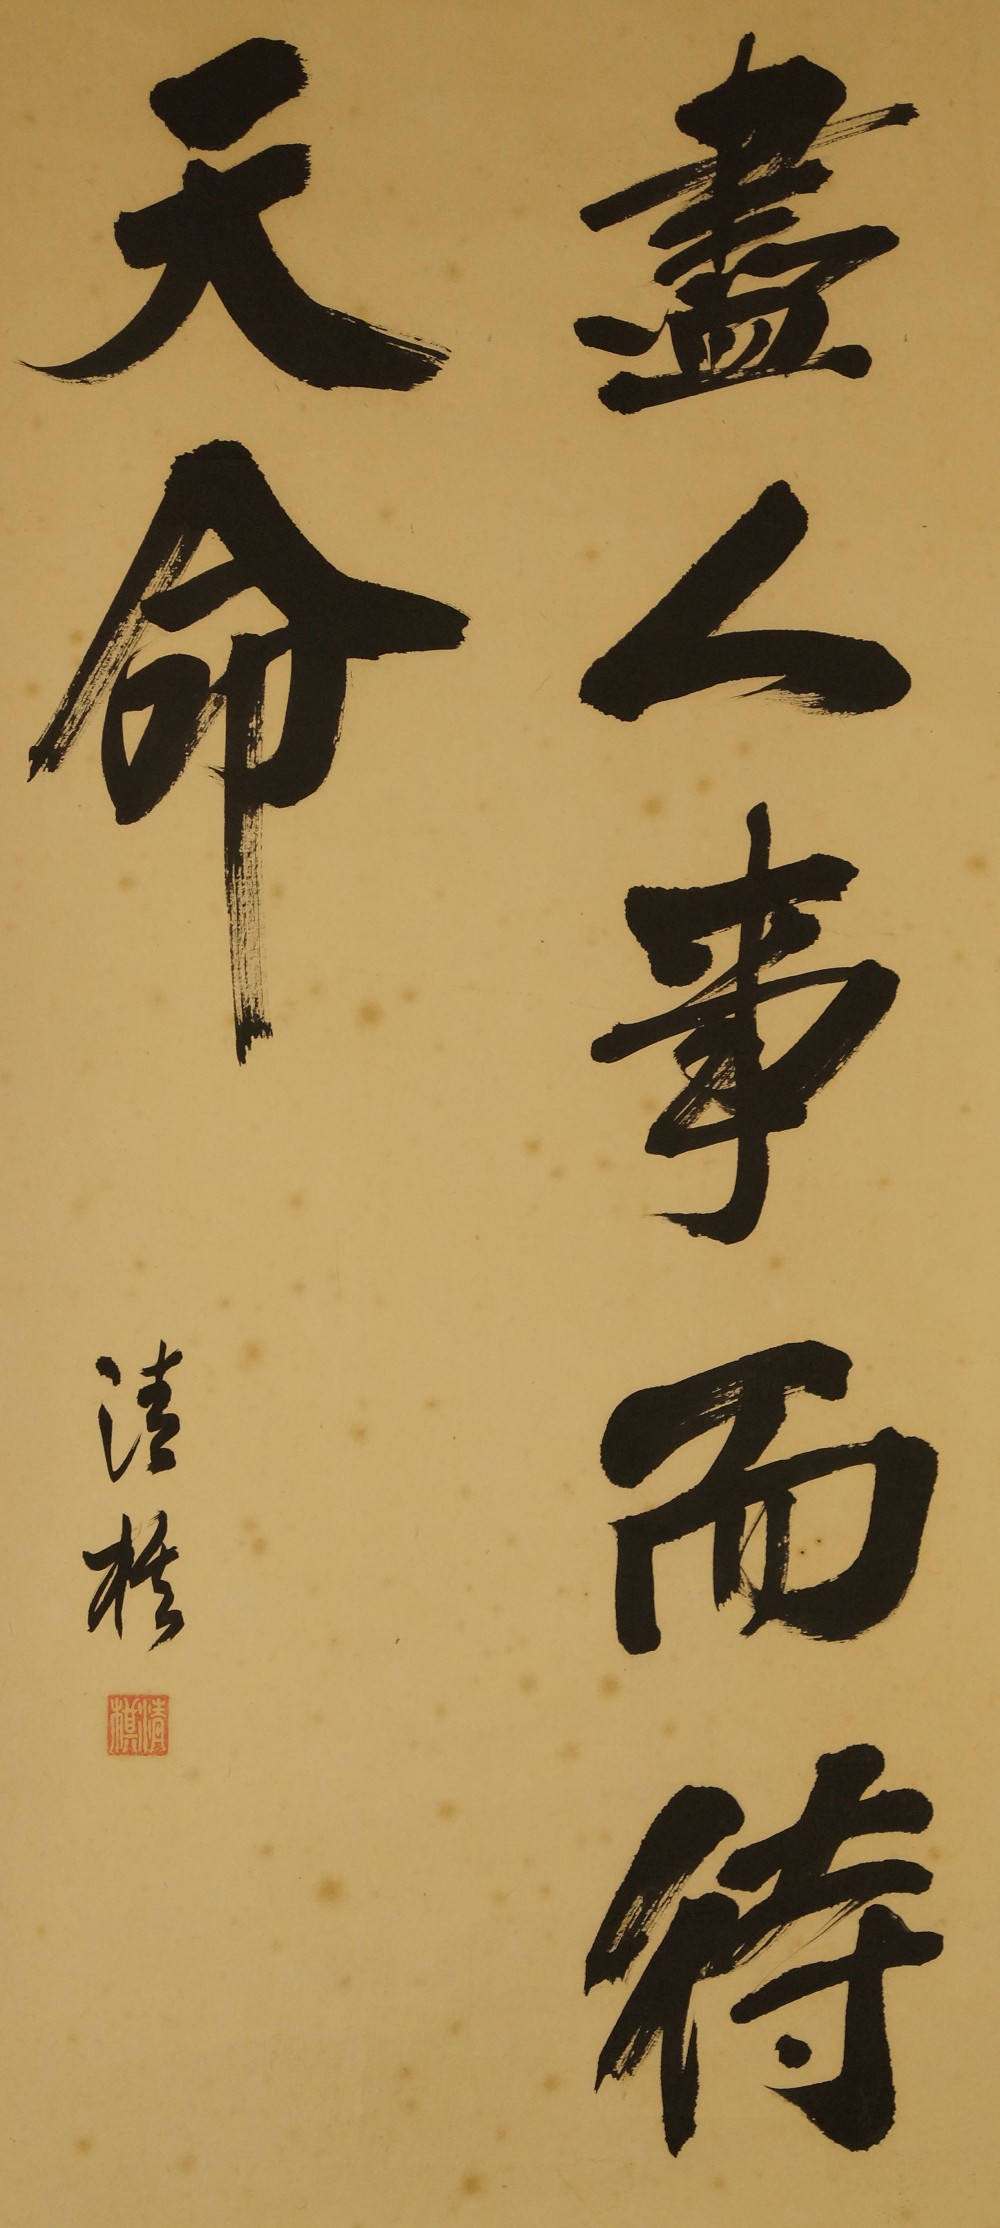 盡人事而待
天命
清棋
清棋